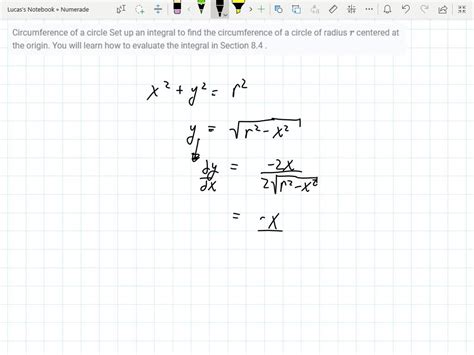 Lucas's Notebook » Numerade
Circumference of a circle Set up an integral to find the circumference of a circle of radius r centered at
the origin. You will learn how to evaluate the integral in Section 8.4 .
x² + y² = r²
y = √(r² - x²)
dy/dx = -2x / 2√(r² - x²)
= -x